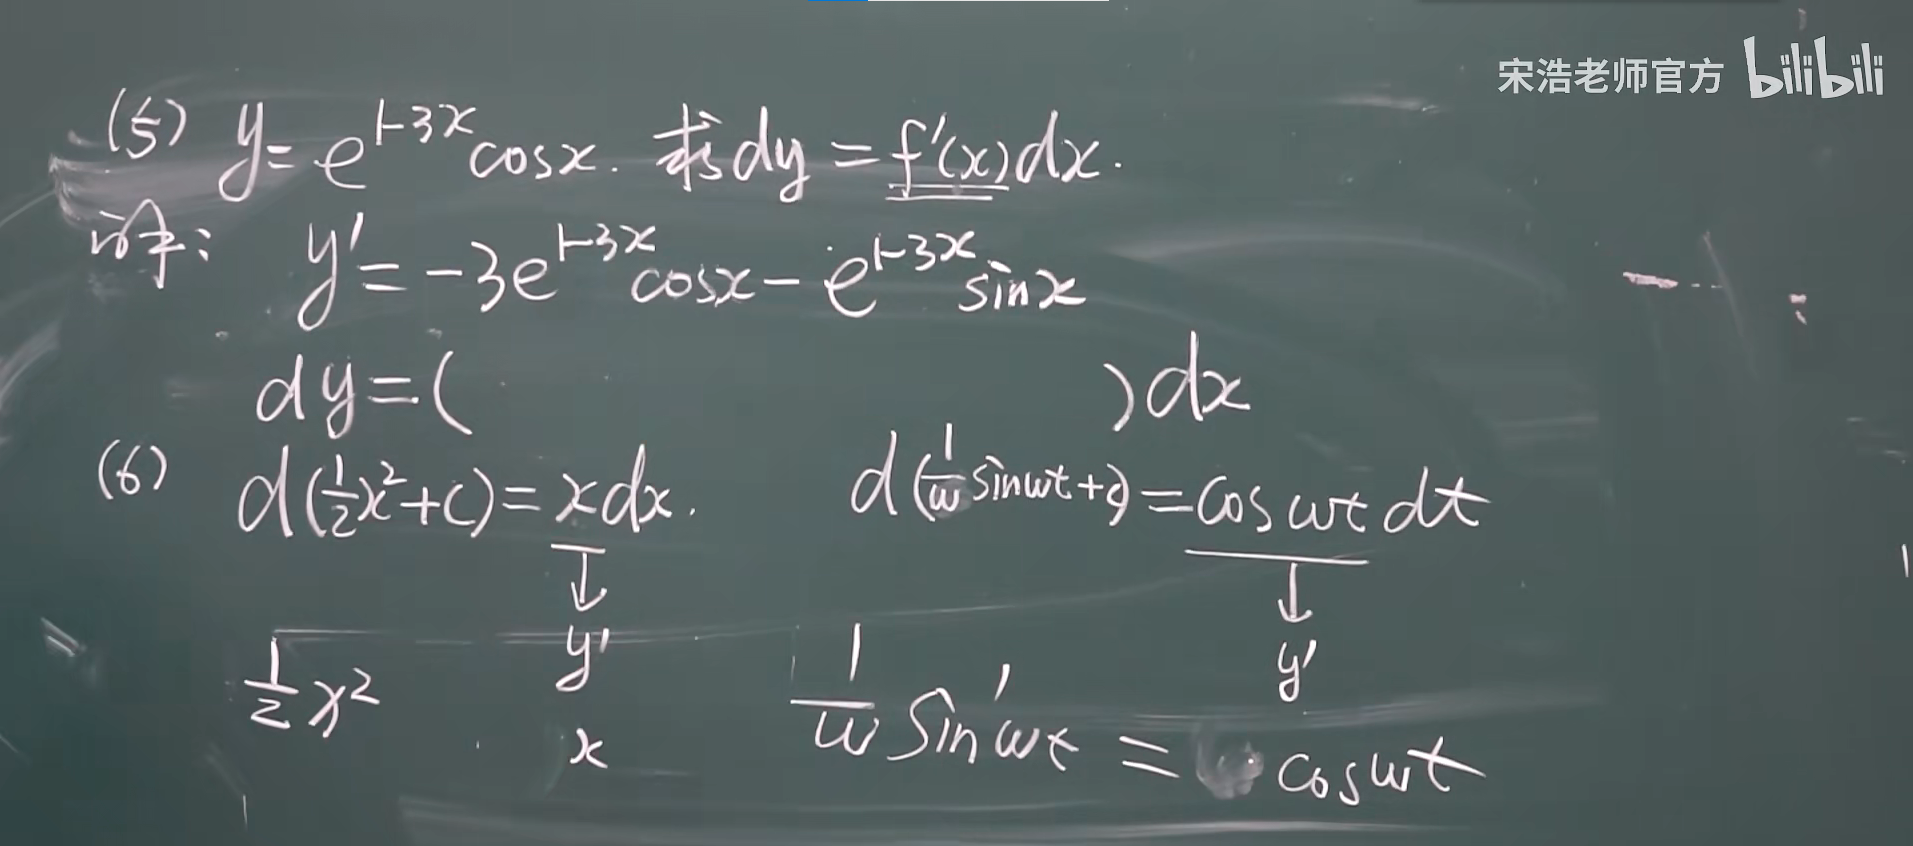 宋浩老师官方 bilibili
(5) y=e^{1-3x}cosx. 求dy=f'(x)dx.
解: y'=-3e^{1-3x}cosx-e^{1-3x}sinx
dy=( )dx
(6) d(\frac{1}{2}x^2+C)=xdx. d(\frac{1}{w}sinwt+C)=coswtdt
↓ ↓
y' y'
\frac{1}{2}x^2 x \frac{1}{w}sin'wt= coswt